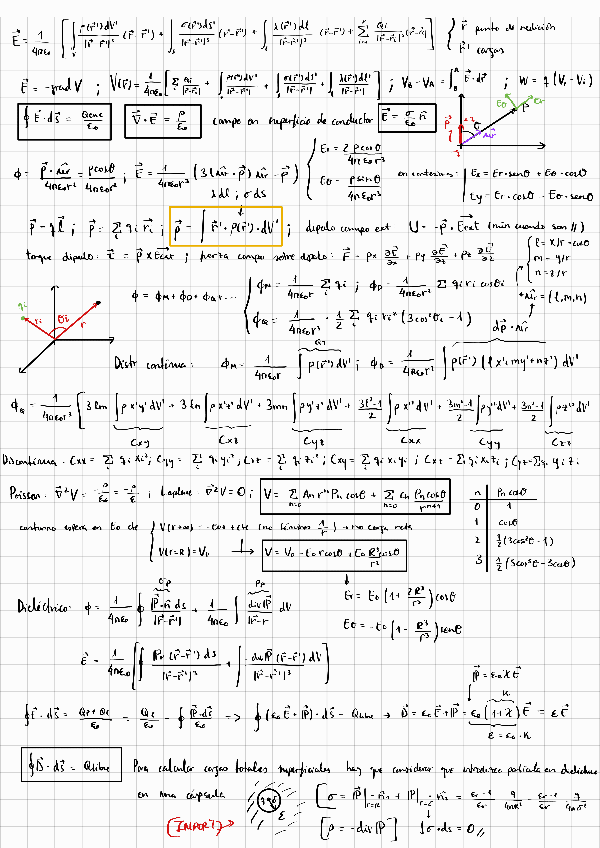 E⃗ = 1/4πε₀ [ ∫_V ρ(r⃗')dV'/|r⃗-r⃗'|³ (r⃗-r⃗') + ∫_S σ(r⃗')dS'/|r⃗-r⃗'|³ (r⃗-r⃗') + ∫_L λ(r⃗')dl/|r⃗-r⃗'|³ (r⃗-r⃗') + Σ qi/|r⃗-r⃗'|³ (r⃗-r⃗') ] { r⃗ punto de medición
r⃗' cargas
E⃗ = -grad V ; V(r⃗) = 1/4πε₀ [ Σ qi/|r⃗-r⃗'| + ∫ ρ(r⃗')dV'/|r⃗-r⃗'| + ∫ σ(r⃗')dS'/|r⃗-r⃗'| + ∫ λ(r⃗')dl/|r⃗-r⃗'| ] ; V_B - V_A = ∫_A^B E⃗·dr⃗ ; W = q (V_f - V_i)
∮ E⃗·dS⃗ = Qenc/ε₀ ∇⃗·E⃗ = ρ/ε₀ campo en superficie de conductor E⃗ = σ/ε₀ n̂
ϕ = p⃗·û_r/4πε₀r² = p cosθ/4πε₀r² ; E⃗ = 1/4πε₀r³ (3(û_r·p⃗) û_r - p⃗) { Er = 2p cosθ/4πε₀r³
Eθ = p senθ/4πε₀r³
en cartesianas: | Ex = Er·senθ + Eθ·cosθ
Ey = Er·cosθ - Eθ·senθ
λ dl ; σ ds
p⃗ = q l⃗ ; p⃗ = Σ qi r⃗i ; p⃗ = ∫ r⃗'·ρ(r⃗')·dV' ; dipolo campo ext U = -p⃗·E⃗ext (min cuando son //)
torque dipolo: τ⃗ = p⃗ × E⃗ext ; fuerza campo sobre dipolo: F⃗ = px ∂E⃗/∂x + py ∂E⃗/∂y + pz ∂E⃗/∂z
{ l = x/r = cosθ
m = y/r
n = z/r
û_r = (l,m,n)
ϕ = ϕM + ϕD + ϕQ + ... { ϕM = 1/4πε₀r Σ qi ; ϕD = 1/4πε₀r² Σ qi ri cosθi
ϕQ = 1/4πε₀r³ · 1/2 Σ qi ri² (3cos²θi - 1)
QT
dp⃗·û_r
Distr continua: ϕM = 1/4πε₀r ∫ ρ(r⃗')dV' ; ϕD = 1/4πε₀r² ∫ ρ(r⃗') (lx'+my'+nz') dV'
ϕQ = 1/4πε₀r³ [ 3lm ∫ρx'y'dV' + 3ln ∫ρx'z'dV' + 3mn ∫ρy'z'dV' + 3l²-1/2 ∫ρx'²dV' + 3m²-1/2 ∫ρy'²dV' + 3n²-1/2 ∫ρz'²dV' ]
Cxy Cxz Cyz Cxx Cyy Czz
Discontinua: Cxx = Σ qi xi² ; Cyy = Σ qi yi² ; Czz = Σ qi zi² ; Cxy = Σ qi xi yi ; Cxz = Σ qi xi zi ; Cyz = Σ qi yi zi
Poisson: ∇²V = -ρ/ε₀ = -ρ/ε ; Laplace: ∇²V = 0 ; V = Σ An rⁿ Pn cosθ + Σ Cn Pn cosθ/rⁿ⁺¹
n Pn cosθ
0 1
1 cosθ
2 1/2 (3cos²θ - 1)
3 1/2 (5cos³θ - 3cosθ)
contorno esfera en E₀ de { V(r→∞) = ... + cte (no término 1/r) → no carga neta
V(r=R) = V₀ → V = V₀ - E₀ r cosθ + E₀ R³ cosθ/r²
σp ρp
Dieléctrico: ϕ = 1/4πε₀ ∮ P⃗·n̂ ds/|r⃗-r⃗'| + 1/4πε₀ ∫ -div P⃗/|r⃗-r⃗'| dV
Er = E₀ (1 + 2R³/r³) cosθ
Eθ = -E₀ (1 - R³/r³) senθ
E⃗ = 1/4πε₀ [ ∮ P⃗n̂ (r⃗-r⃗') ds/|r⃗-r⃗'|³ + ∫ -div P⃗ (r⃗-r⃗') dV/|r⃗-r⃗'|³ ]
P⃗ = ε₀ χ E⃗
∮ E⃗·dS⃗ = QT+Qe/ε₀ = Qe/ε₀ - ∮ P⃗·dS⃗/ε₀ => ∮ (ε₀E⃗ + P⃗)·dS⃗ = Qlibre → D⃗ = ε₀E⃗ + P⃗ = ε₀ (1+χ) E⃗ = εE⃗
ε = ε₀·K
∮ D⃗·dS⃗ = Qlibre Para calcular cargas totales superficiales hay que considerar que introduzco partícula en dieléctrico
en una cápsula
[IMPORT]
[ρ = -div P⃗] ∫σ ds = 0